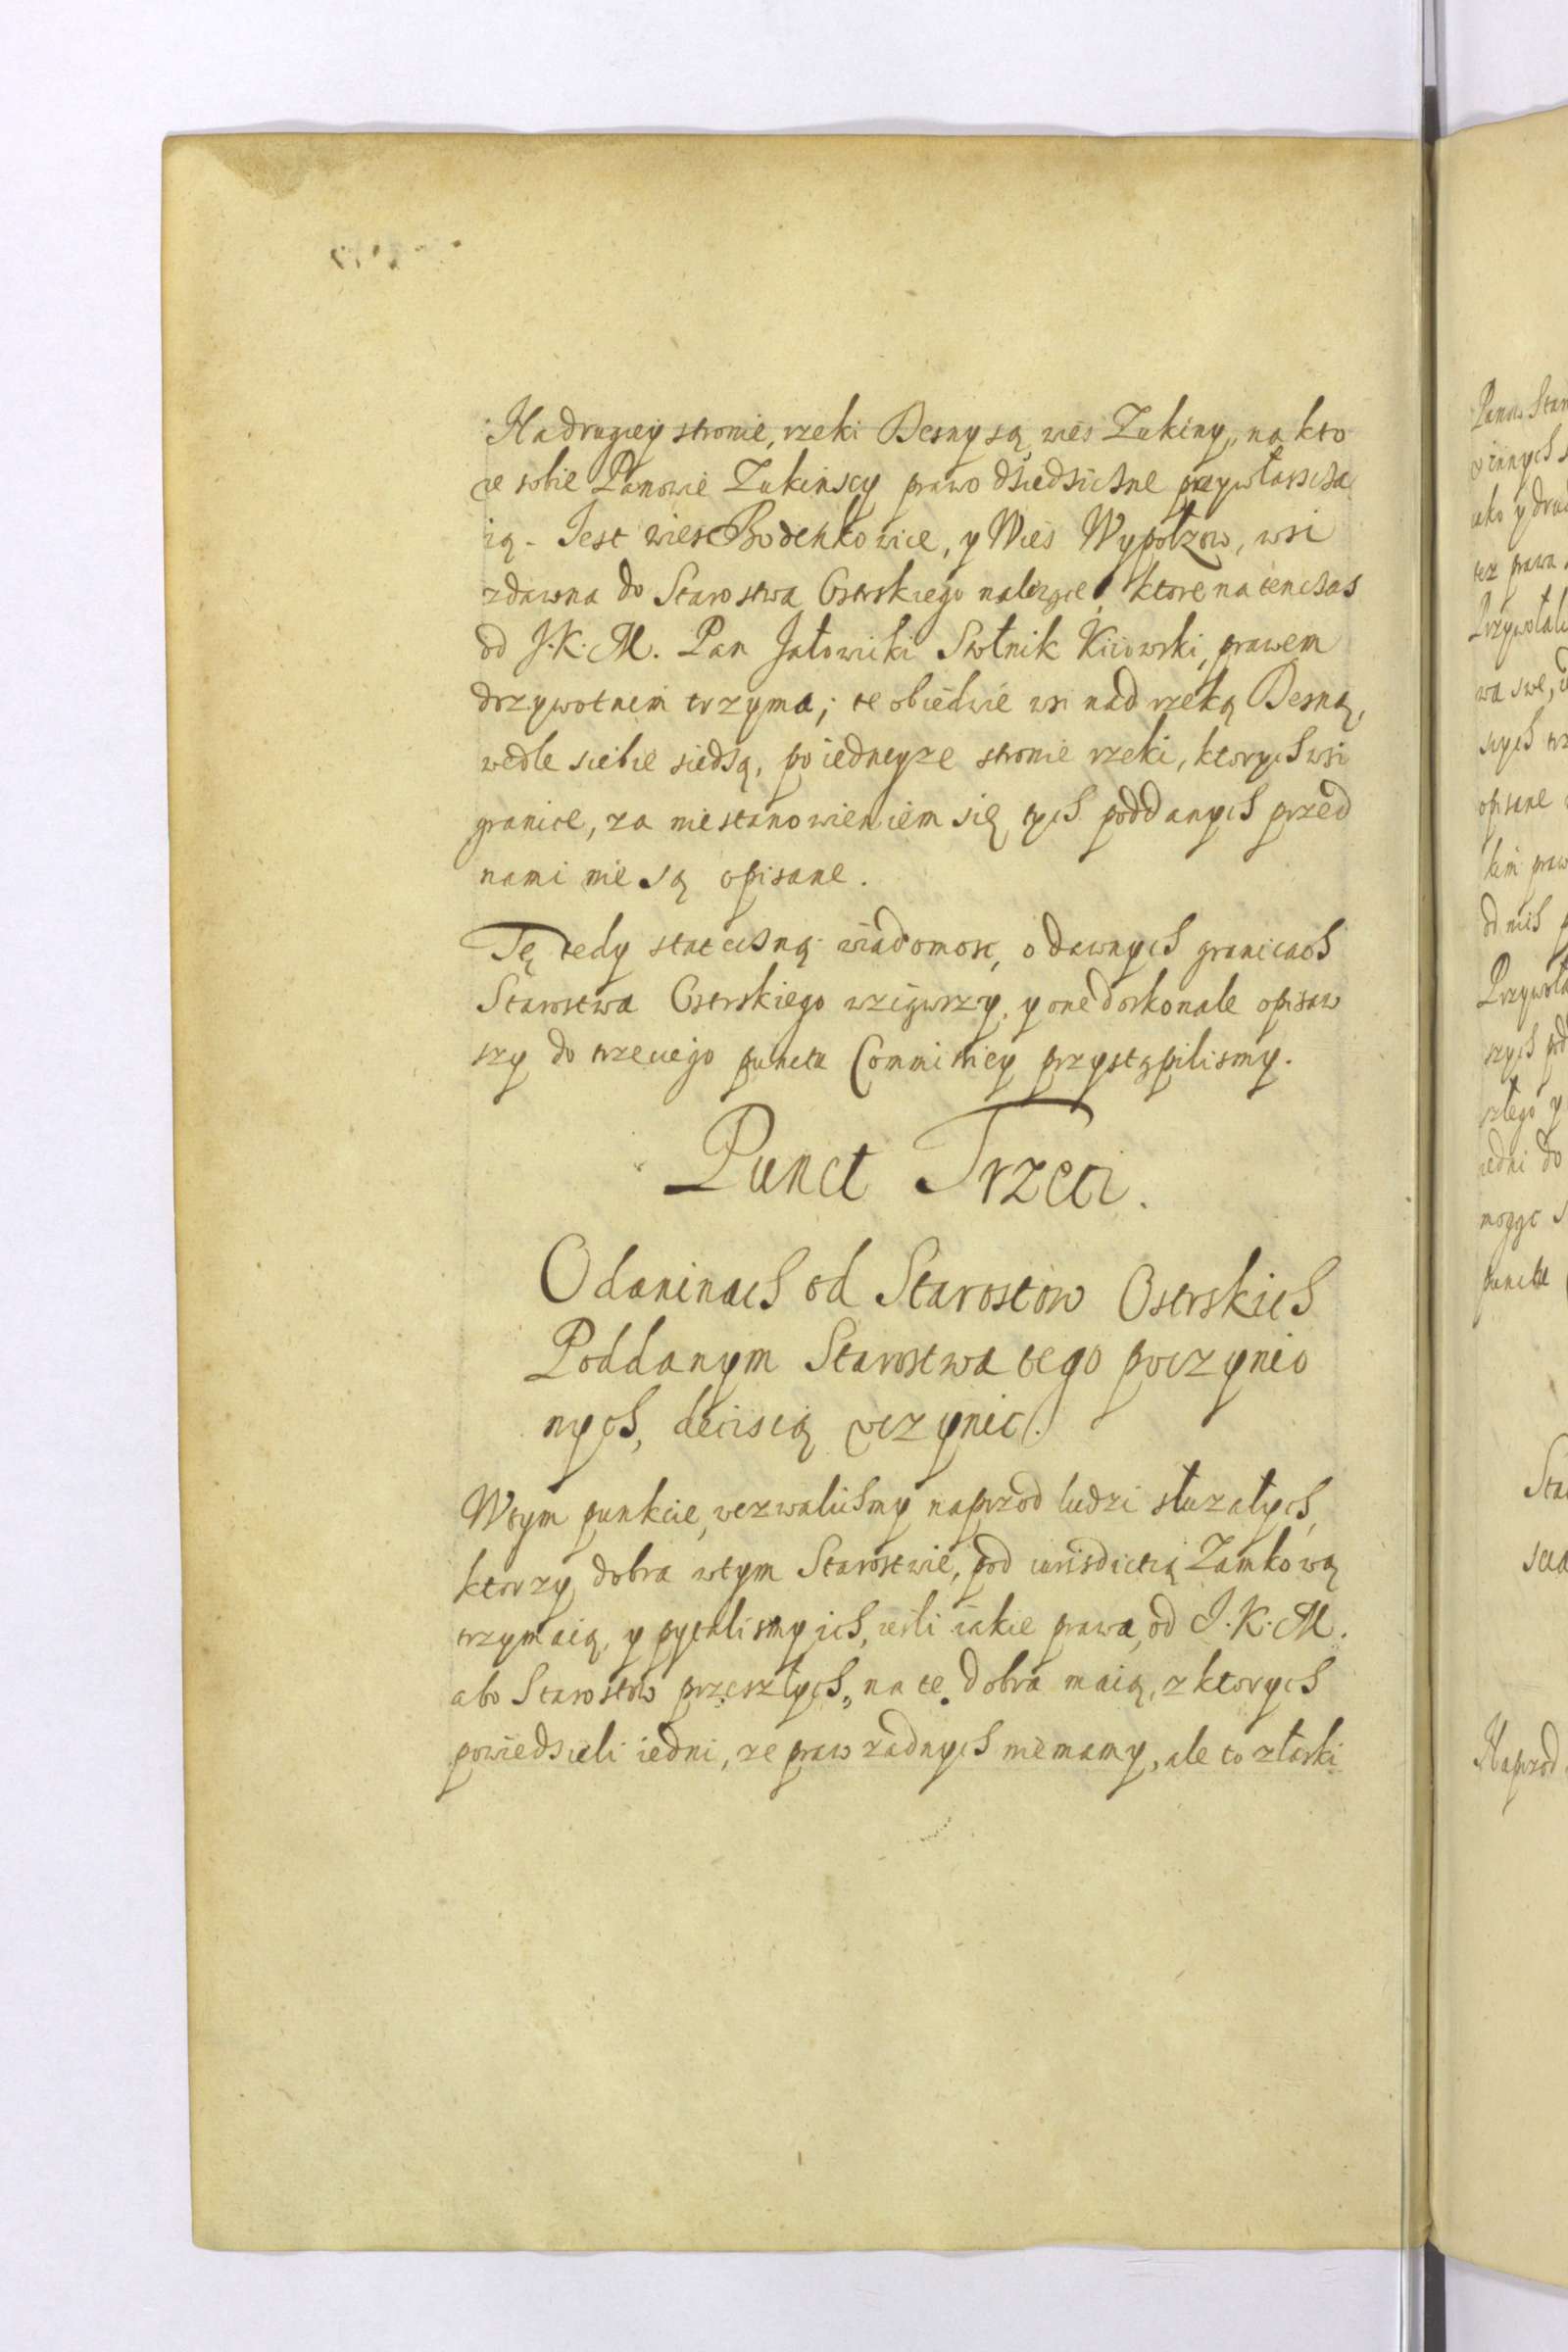 Na drugiey stronie, rzeki Desny są wies Zukiny, na kto
re sobie Panowie Zukinscy prawo dziedziczne przywłaszcza
ią. Jest wies Bodenkowice, y Wies Wypołzow, wsi
zdawna do Starostwa Osterskiego należące, ktore na tenczas
od J. K. M. Pan Jałowicki Stolnik Kiiowski, prawem
dozywotnem trzyma; te obiedwie wsi nad rzeką Desną,
wedle siebie siedzą, po iedneyze stronie rzeki, ktorych wsi
granice, za niestanowieniem się tych poddanych przed
nami nie są opisane.
Tę tedy stateczną wiadomosc, o dawnych granicach
Starostwa Osterskiego wziąwszy, y one doskonale opisaw
szy do trzeciego puncta Commissiey przystąpilismy.
Punct Trzeci.
O daninach od Starostow Osterskich
Poddanym Starostwa tego poczynio
nych, decisią uczynic.
W tym punkcie, wezwalismy naprzod ludzi służałych,
ktorzy dobra w tym Starostwie, pod iurisdictią Zamkową
trzymaią, y pytalismy ich, iesli iakie prawa, od J. K. M.
abo Starostow przeszłych, na te dobra maią, z ktorych
powiedzieli iedni, ze praw zadnych nie mamy, ale to z łaski
Panow Star
y innych
iako y drud
tez prawa
Przywołali
wa swe,
opisane
kim praw
od nich
Przywoła
szych pod
szłego y
iedni do
mogąc
puncta
Sta
Naprzod